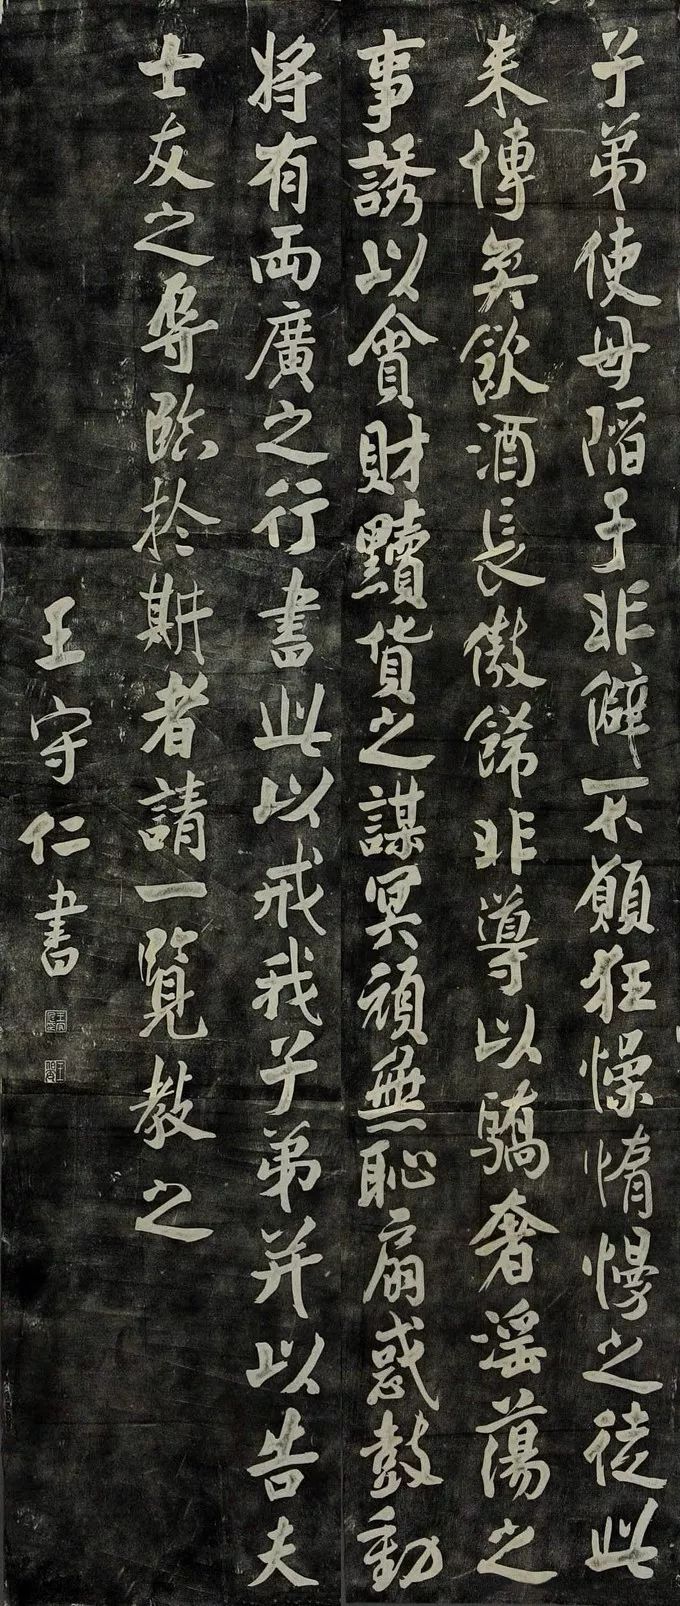 子弟使毋陷于非僻不願狂懆惰慢之徒此
来博奕飲酒長傲飾非導以驕奢淫蕩之
事誘以貪財黷貨之謀冥頑無恥扇惑鼓動
將有兩廣之行書此以戒我子弟并以告夫
士友之辱臨於斯者請一覽教之
王守仁書